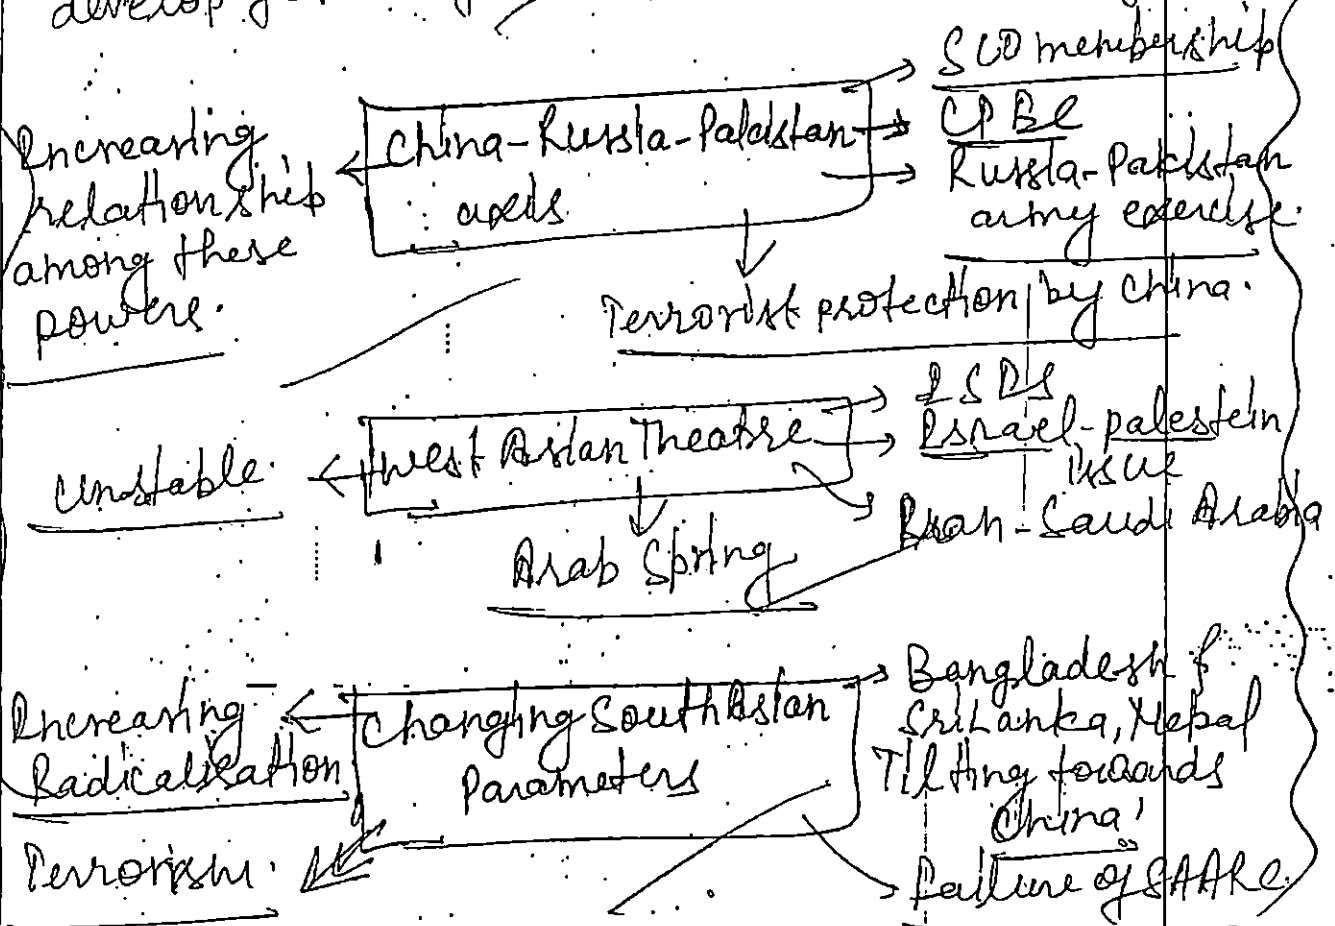 develop
SCO membership
Increasing
relationship
among these
powers.
China-Russia-Pakistan
axis.
CPEC
Russia-Pakistan
army exercise.
Terrorist protection by China.
Unstable.
West Asian Theatre
ISIS
Israel-palestein
issue
Iran-Saudi Arabia
Arab Spring
Increasing
Radicalisation
Terrorism.
Changing South Asian
Parameters
Bangladesh &
SriLanka, Nepal
Tilting towards
China
Failure of SAARC.